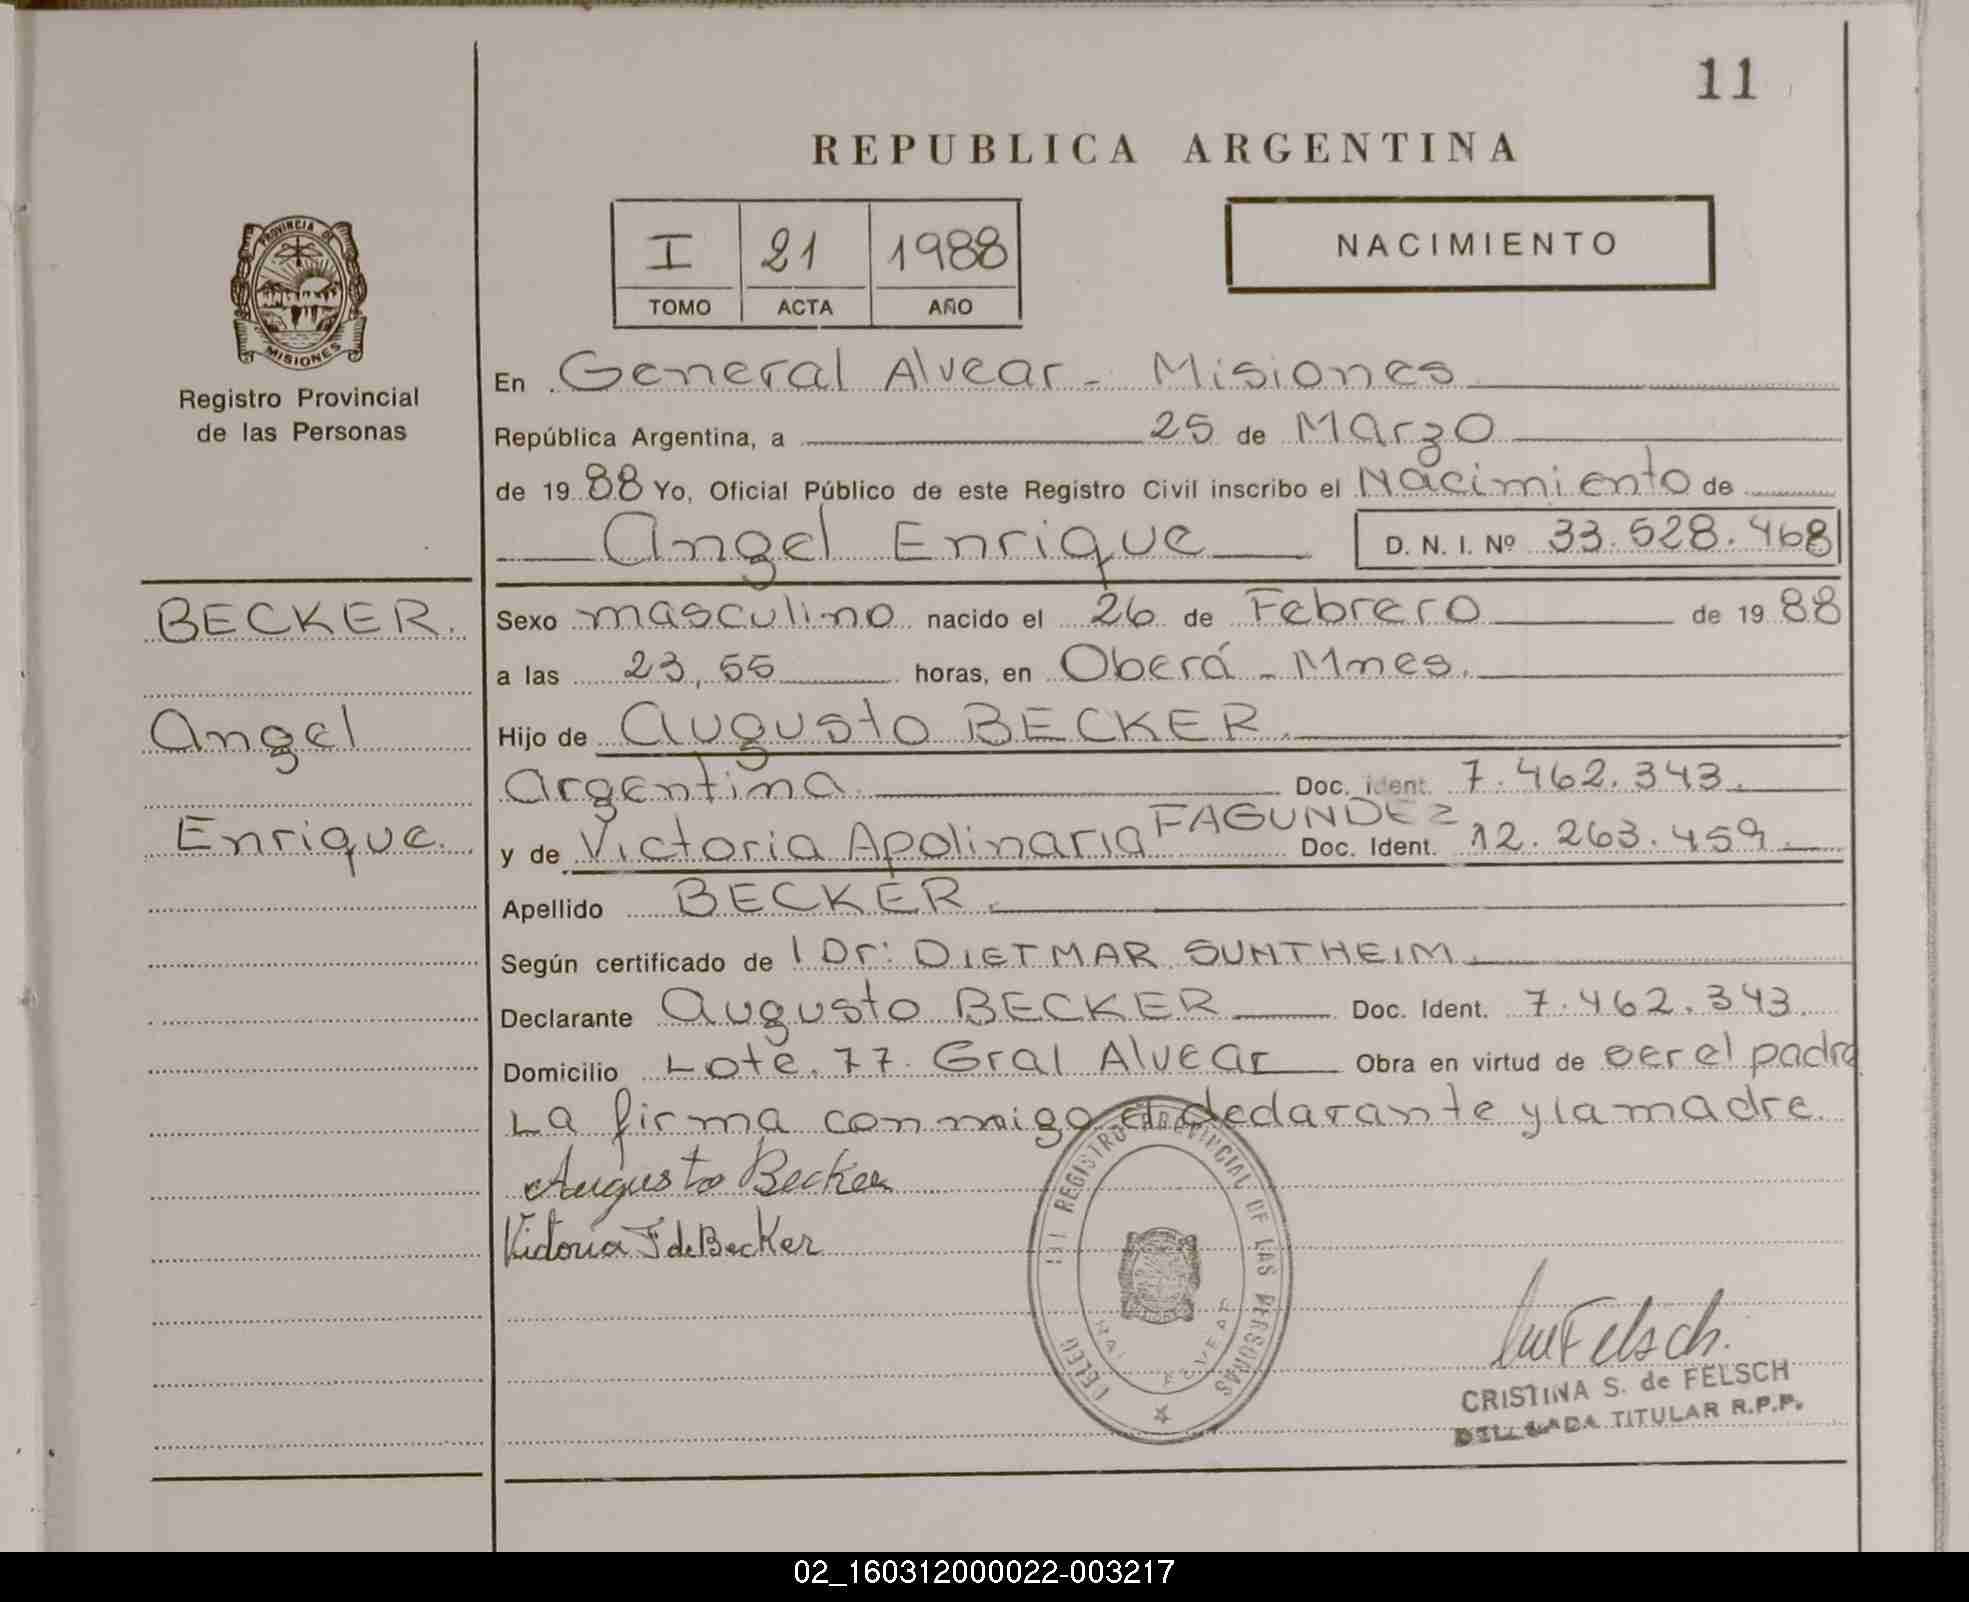 11
REPUBLICA ARGENTINA
I 21 1988
TOMO ACTA AÑO
NACIMIENTO
PROVINCIA DE
MISIONES
Registro Provincial
de las Personas
En General Alvear - Misiones
República Argentina, a 25 de Marzo
de 1988 Yo, Oficial Público de este Registro Civil inscribo el Nacimiento de
Angel Enrique D. N. I. Nº 33.528.468
BECKER.
Angel
Enrique.
Sexo masculino nacido el 26 de Febrero de 1988
a las 23,55 horas, en Oberá - Mnes.
Hijo de Augusto BECKER.
Argentina Doc. ident. 7.462.343.
y de Victoria Apolinaria FAGUNDEZ Doc. Ident. 12.263.459.
Apellido BECKER.
Según certificado de l Dr: DIETMAR SUNTHEIM
Declarante Augusto BECKER Doc. Ident. 7.462.343.
Domicilio Lote. 77. Gral Alvear Obra en virtud de ser el padre
La firma conmigo el declarante y la madre.
Augusto Becker
Victoria F de Becker
REGISTRO PROVINCIAL DE LAS PERSONAS
Felsch.
CRISTINA S. de FELSCH
DELEGADA TITULAR R.P.P.
02_160312000022-003217